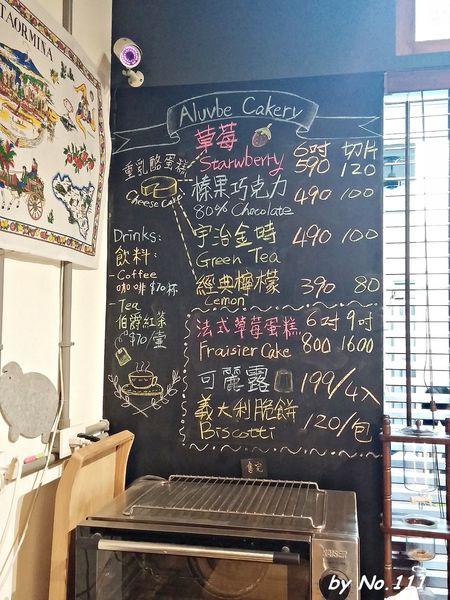 TAORMINA
Aluvbe Cakery
6吋 切片
草莓
Starwberry 590 120
重乳酪蛋糕
Cheese Cake
榛果巧克力 490 100
80% Chocolate
宇治金時 490 100
Green Tea
經典檸檬 390 80
Lemon
Drinks:
飲料:
- Coffee
咖啡 $70/杯
- Tea
伯爵紅茶
$70/壺
法式草莓蛋糕 6吋 9吋
Fraisier Cake 800 1600
可麗露 199/4入
義大利脆餅 120/包
Biscotti
售完
by No.111